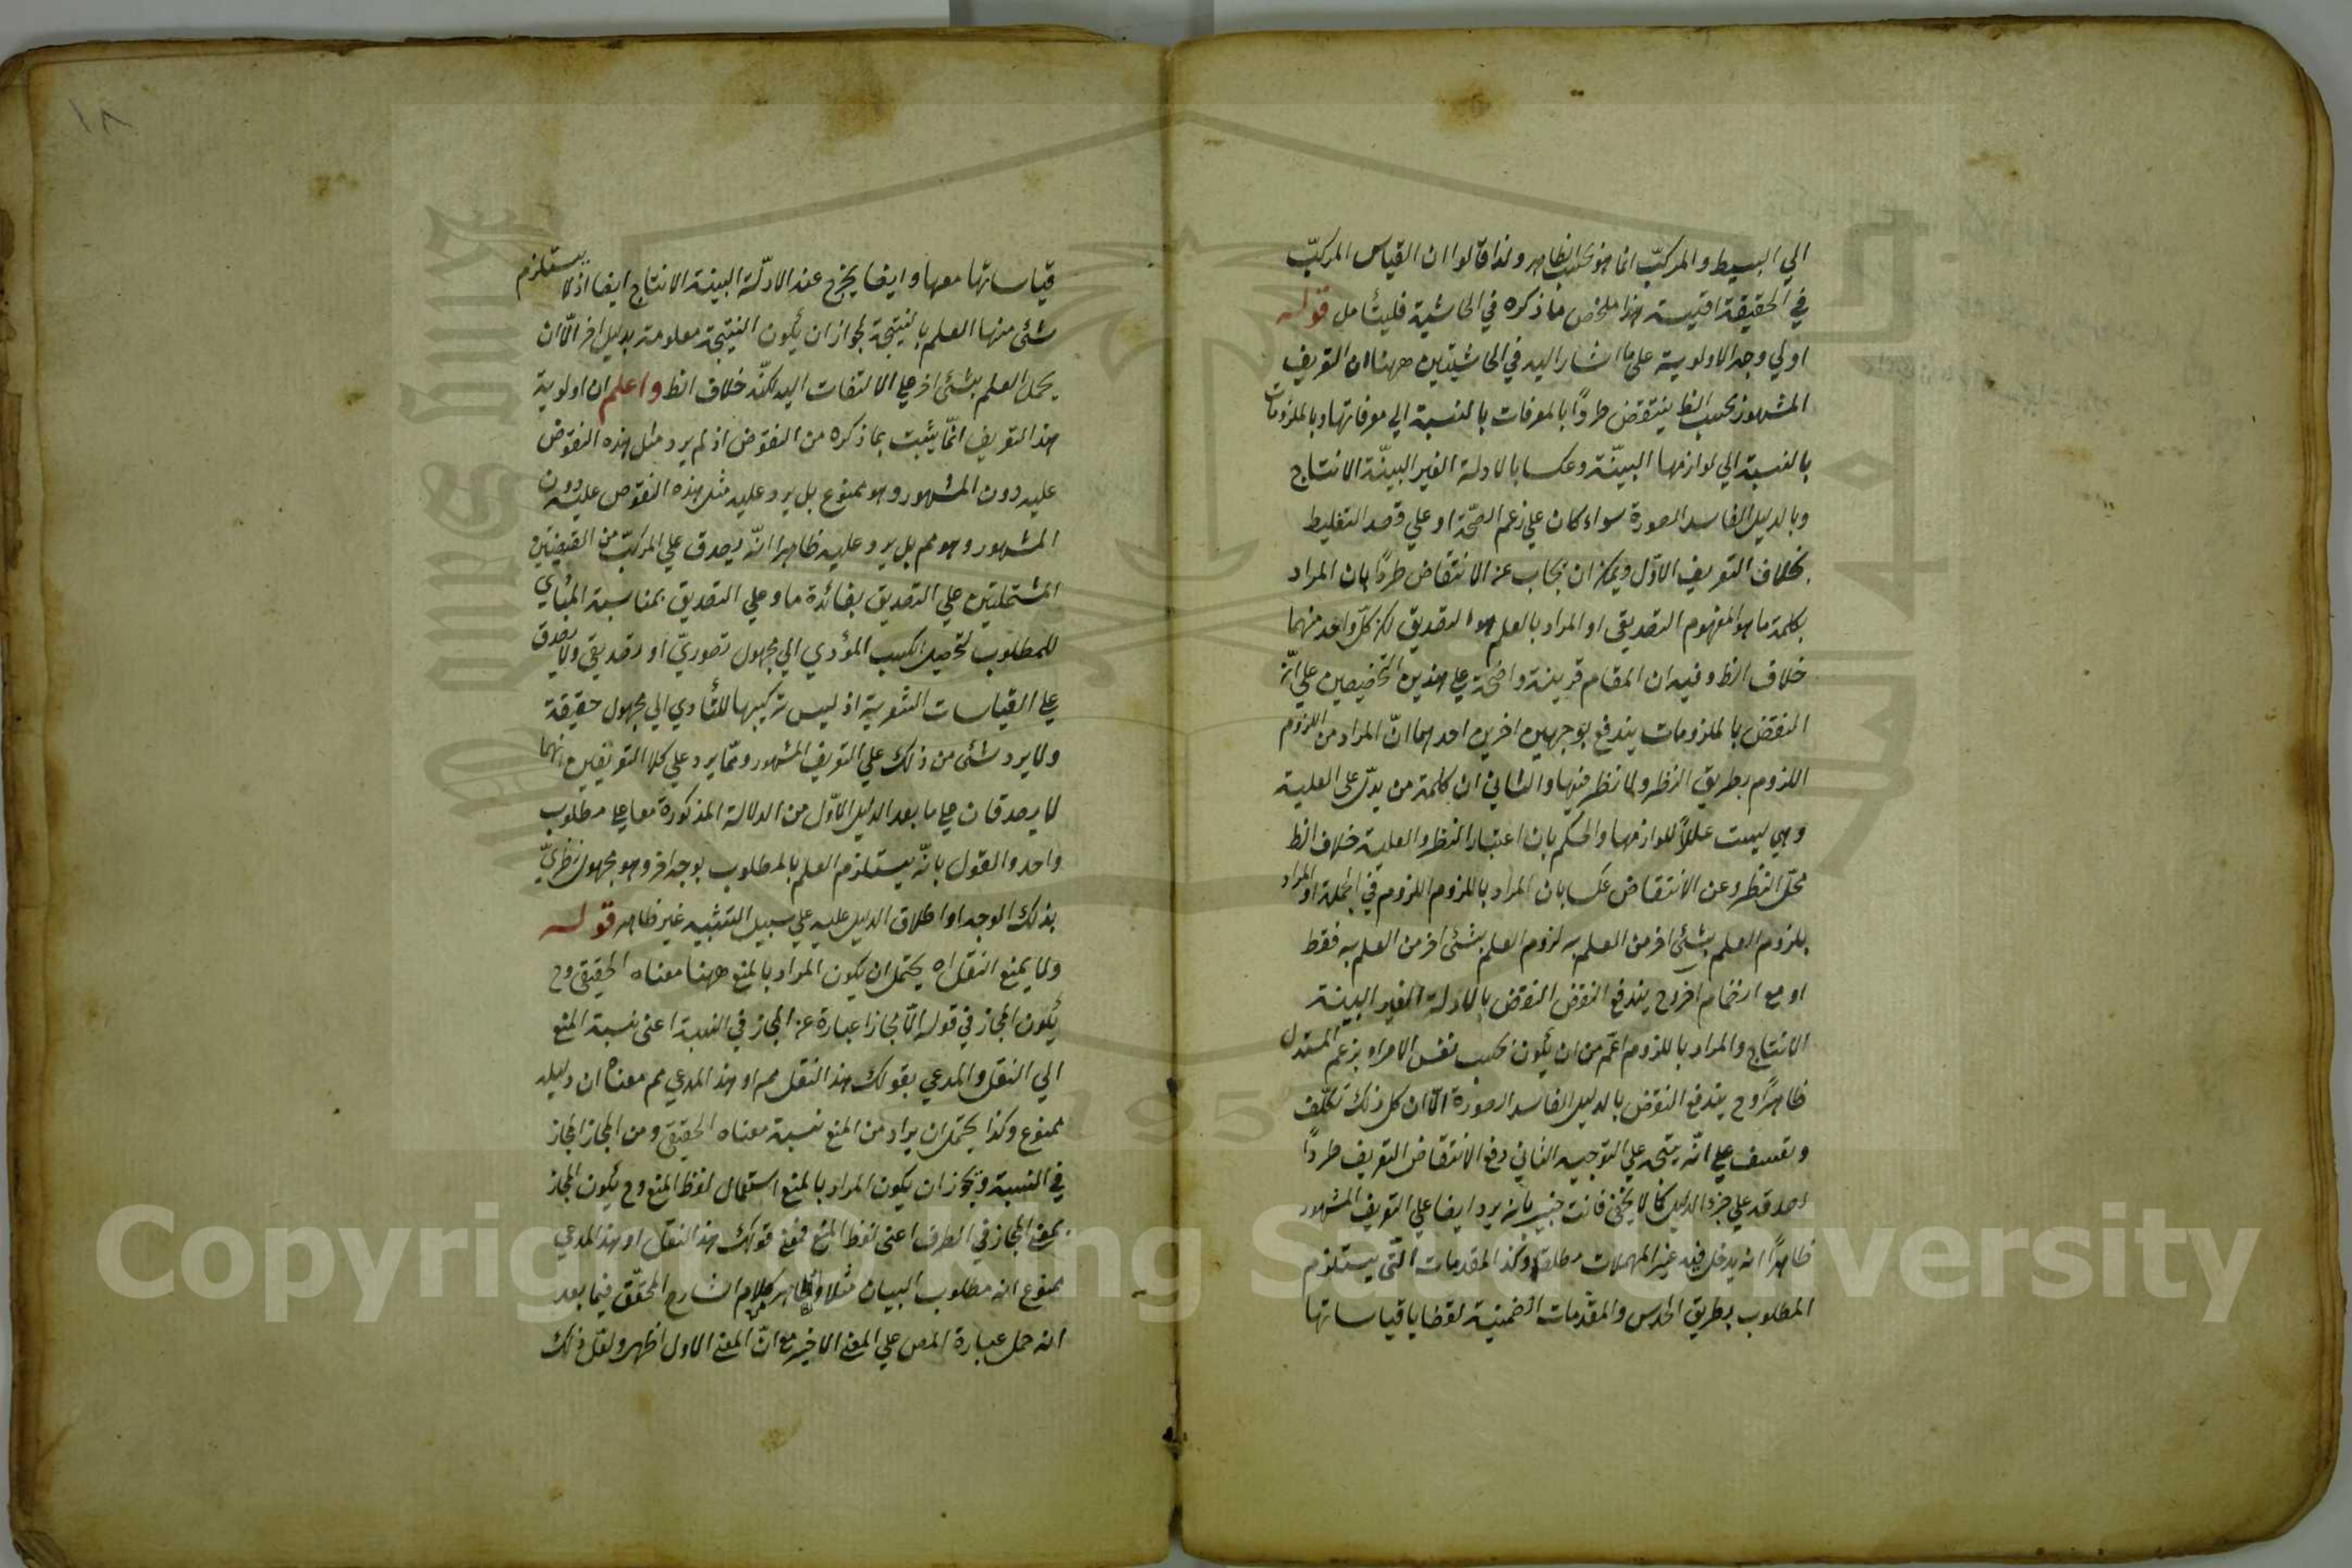 الي البسيط والمركّب انما هو بحسب الظاهر ولذا قالوا ان القياس المركّب
في الحقيقة اقيسة هذا ملخص ما ذكره في الحاشية فليتأمل قوله
اولي وجه الاولوية على ما اشار اليه في الحاشيتين ههنا ان التعريف
المشهور بحسب الظ ينتقض طردًا بالمعرفات بالنسبة الي معرفاتها وبالملزومات
بالنسبة الي لوازمها البيّنة وعكسا بالادلة الغير البيّنة الانتاج
وبالدليل الفاسد الصورة سواء كان علي زعم الصّحة او علي قصد التغليط
بخلاف التعريف الاوّل ويمكن ان يجاب عن الانتقاض طردًا بان المراد
بكلمة ما هو المفهوم التصديقي او المراد بالعلم هو التصديق لكن كلّ واحد منهما
خلاف الظ وفيه ان المقام قرينة واضحة علي هذين التخصيصين علي انّ
النقض بالملزومات يندفع بوجهين اخرين احدهما انّ المراد من اللزوم
اللزوم بطريق النظر ولا نظر فيها والثاني ان كلمة من يدلّ على العلية
وهي ليست عللاً للوازمها والحكم بان اعتبار النظر والعلية خلاف الظ
محلّ النظر وعن الانتقاض عكسا بان المراد باللزوم اللزوم في الجملة او المراد
بلزوم العلم بشئ اخر من العلم به لزوم العلم بشئ اخر من العلم به فقط
او مع انضمام اخر وح يندفع النقض النقض بالادلة الغير البينة
الانتاج والمراد باللزوم اعّم من ان يكون بحسب نفس الامر او بزعم المستدل
ظاهرًا وح يندفع النقض بالدليل الفاسد الصورة الّا ان كل ذلك تكلّف
وتعسف علي انّه يتجه علي التوجيه الثاني دفع الانتقاض التعريف طردًا
لصدقه علي جزء الدليل كما لا يخفى فانت خبير بانه يرد ايضا علي التعريف المشهور
ظاهرًا انه يدخل فيه غير المهملات مطلقا وكذا المقدمات الّتي يستلزم
المطلوب بطريق الحدس والمقدمات الضمنية لقضايا قياساتها
قياساتها معها وايضا يخرج عنه الادلّة البينة الانتاج ايضا اذ لا يستلزم
شئ منها العلم بالنتيجة لجواز ان يكون النتيجة معلومة بدليل اخر الّا ان
يحمل العلم بشئ اخر علي الالتفات اليه لكنّه خلاف الظ واعلم ان اولوية
هذا التعريف انمّا يثبت بما ذكره من النقوض اذ لم يرد مثل هذه النقوض
عليه دون المشهور وهو ممنوع بل يرد عليه مثل هذه النقوض عليه دون
المشهور وهو مم بل يرد عليه ظاهرا انّه يصدق علي المركّب من القضيتين
المشتملتين علي التصديق بفائدة ما وعلي التصديق بمناسبة المبادي
للمطلوب لتحصيل الكسب المؤدي الي مجهول تصوريّ او تصديقي ولا يصدق
علي القياسات الشعرية اذ ليس تركيبها للتأدي الي مجهول حقيقة
ولا يرد شئ من ذلك علي التعريف المشهور وممّا يرد علي كلا التعريفين انهما
لا يصدقان علي ما بعد الدليل الاوّل من الدلالة المذكورة معا علي مطلوب
واحد والقول بانّه يستلزم العلم بالمطلوب بوجه اخر وهو مجهول نظريّ
بذلك الوجه او اطلاق الدليل عليه علي سبيل التشبيه غير ظاهر قوله
ولا يمنع النقل اه يحتمل ان يكون المراد بالمنع ههنا معناه الحقيقي وح
يكون المجاز في قوله الّا مجازا عبارة عن المجاز في النسبة اعني نسبة المنع
الي النقل والمدعي بقولك هذا النقل مم او هذا المدعي مم معناه ان دليله
ممنوع وكذا يحتمل ان يراد من المنع نسبة معناه الحقيقي ومن المجاز المجاز
في النسبة ويجوز ان يكون المراد بالمنع استعمال لفظ المنع وح يكون المجاز
بمعني المجاز في الطرف اعني لفظ المنع فمعني قولك هذا النقل او هذا المدعي
ممنوع انه مطلوب البيان مثلا والظاهر من كلام الشارح المحقّق فيما بعد
انه حمل عبارة المص علي المعني الاخير مع انّ المعني الاول اظهر ولعل ذلك
١٨
Copyright © King Saud University
1957